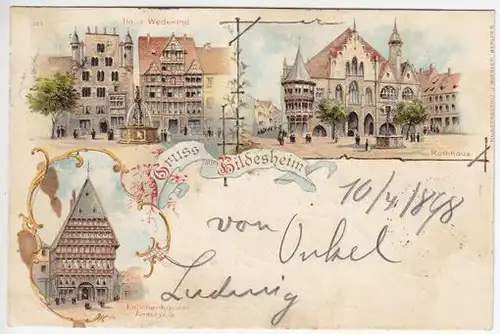 Haus Wedekind
Rathhaus
Gruss aus Hildesheim
10/4 1898
von Onkel
Ludwig